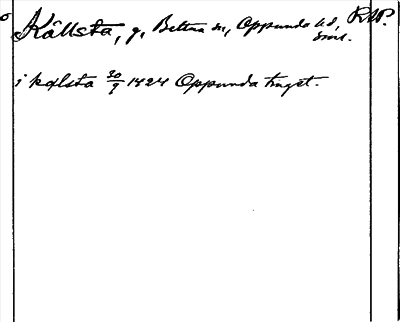 Källsta, g, Bettna sn, Oppunda hd, RAP.
Söml.
i kælsta 30/9 1424 Oppunda tingst.